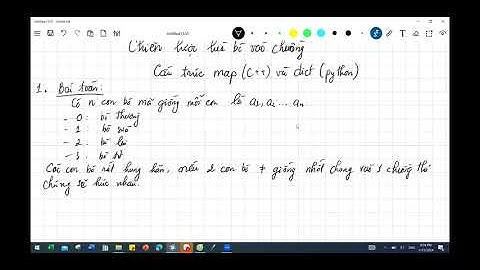 Chiến lược thả bò vào chuồng
Cấu trúc map (C++) và dict (python)
1. Bài toán:
Có n con bò mà giống mỗi con là a1, a2 ... an
- 0: bò thường
- 1: bò sữa
- 2: bò lai
- 3: bò
Các con bò rất hung hăn, nếu 2 con bò ≠ giống nhốt chung vào 1 chuồng thì
chúng sẽ húc nhau.